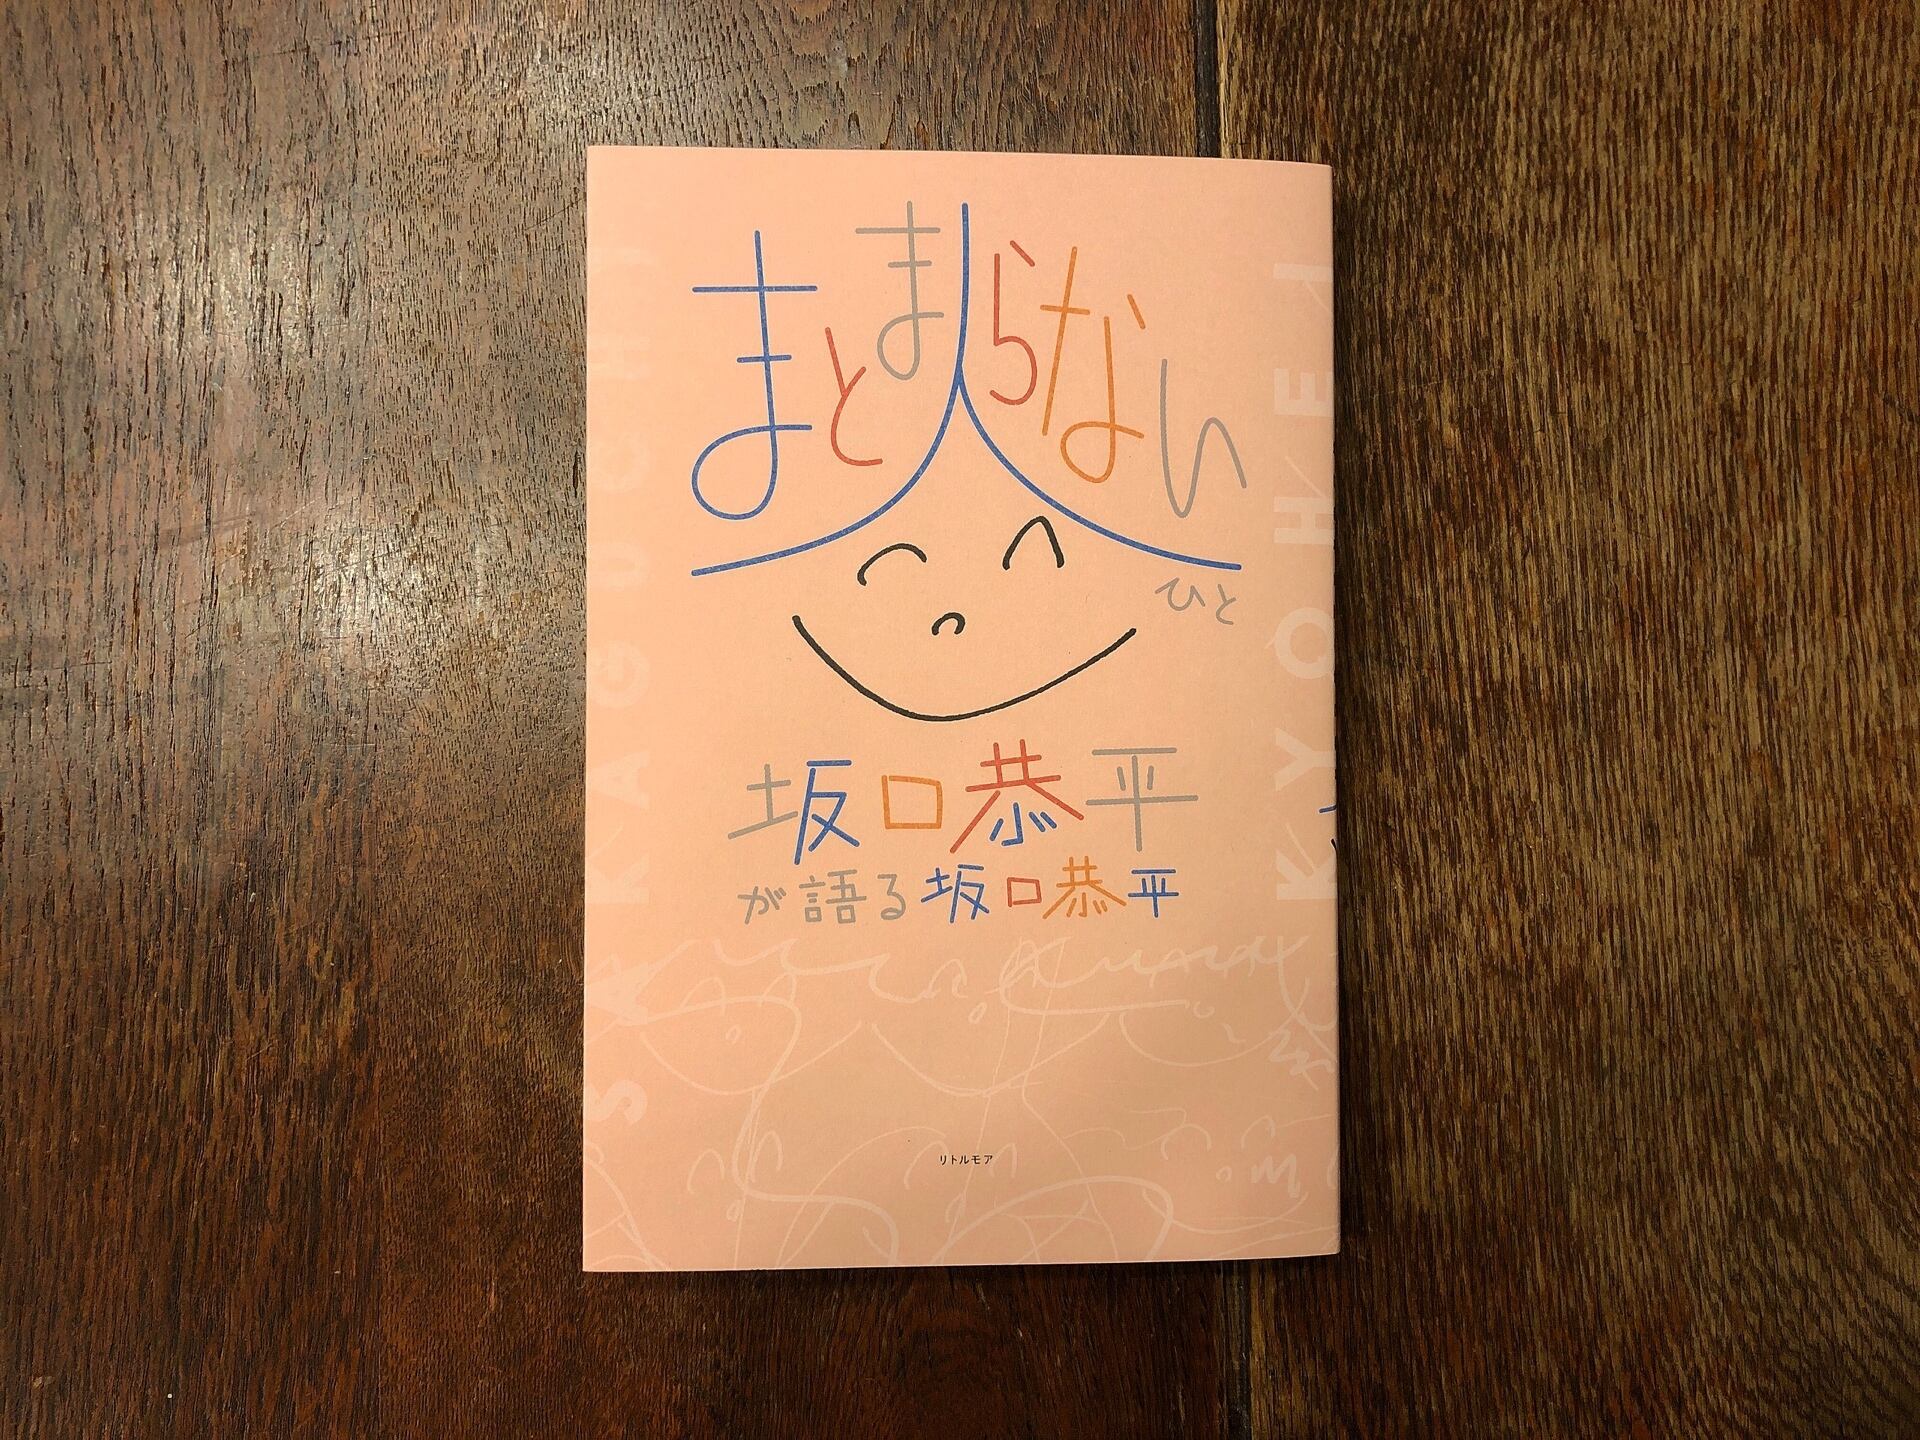 まとまらない
人
ひと
坂口恭平
が語る坂口恭平
リトルモア
SAKAGUCHI
KYOHEI